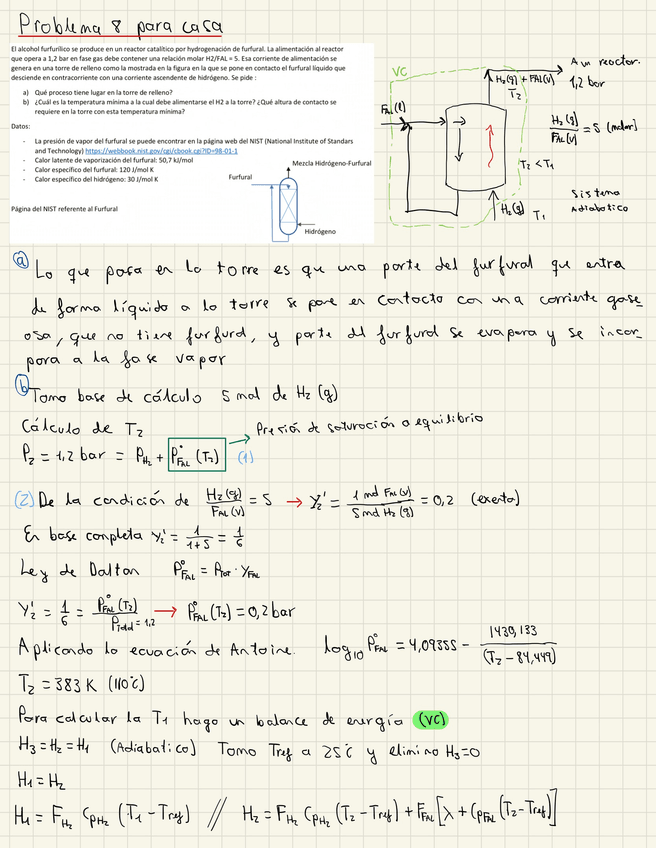 Problema 8 para casa
El alcohol furfurílico se produce en un reactor catalítico por hydrogenación de furfural. La alimentación al reactor
que opera a 1,2 bar en fase gas debe contener una relación molar H2/FAL = 5. Esa corriente de alimentación se
genera en una torre de relleno como la mostrada en la figura en la que se pone en contacto el furfural líquido que
desciende en contracorriente con una corriente ascendente de hidrógeno. Se pide :
a) Qué proceso tiene lugar en la torre de relleno?
b) ¿Cuál es la temperatura mínima a la cual debe alimentarse el H2 a la torre? ¿Qué altura de contacto se
requiere en la torre con esta temperatura mínima?
Datos:
- La presión de vapor del furfural se puede encontrar en la página web del NIST (National Institute of Standars
and Technology) https://webbook.nist.gov/cgi/cbook.cgi?ID=98-01-1
- Calor latente de vaporización del furfural: 50,7 kJ/mol
- Calor específico del furfural: 120 J/mol K
- Calor específico del hidrógeno: 30 J/mol K
Página del NIST referente al Furfural
Mezcla Hidrógeno-Furfural
Furfural
Hidrógeno
VC
FAL(l)
H2(g) + FAL(v)
T2
A un reactor.
1,2 bar
H2(g)/FAL(v) = 5 (molar)
T2 < T1
H2(g) T1
Sistema
Adiabatico
a Lo que pasa en la torre es que una parte del furfural que entra
de forma líquido a la torre se pone en contacto con una corriente gase
osa, que no tiene furfural, y parte del furfural se evapora y se incor_
pora a la fase vapor
b Tomo base de cálculo 5 mol de H2 (g)
Cálculo de T2
Presión de saturación o equilibrio
P2 = 1,2 bar = PH2 + P°FAL (T2) (1)
(2) De la condición de H2(g)/FAL(v) = 5 → Y2' = 1 mol FAL(v)/5 mol H2(g) = 0,2 (exenta)
En base completa y2' = 1/(1+5) = 1/6
Ley de Dalton P°FAL = PTOT · YFAL
Y2' = 1/6 = P°FAL(T2)/PTotal = 1,2 → P°FAL(T2) = 0,2 bar
Aplicando la ecuación de Antoine. log10 P°FAL = 4,09355 - 1430,133/(T2 - 84,449)
T2 = 383 K (110°C)
Para calcular la T1 hago un balance de energía (VC)
H3 = H2 = H1 (Adiabatico) Tomo Tref a 25°C y elimino H3=0
H1 = H2
H1 = FH2 CpH2 (T1 - Tref) // H2 = FH2 CpH2 (T2 - Tref) + FFAL [λ + CpFAL (T2 - Tref)]